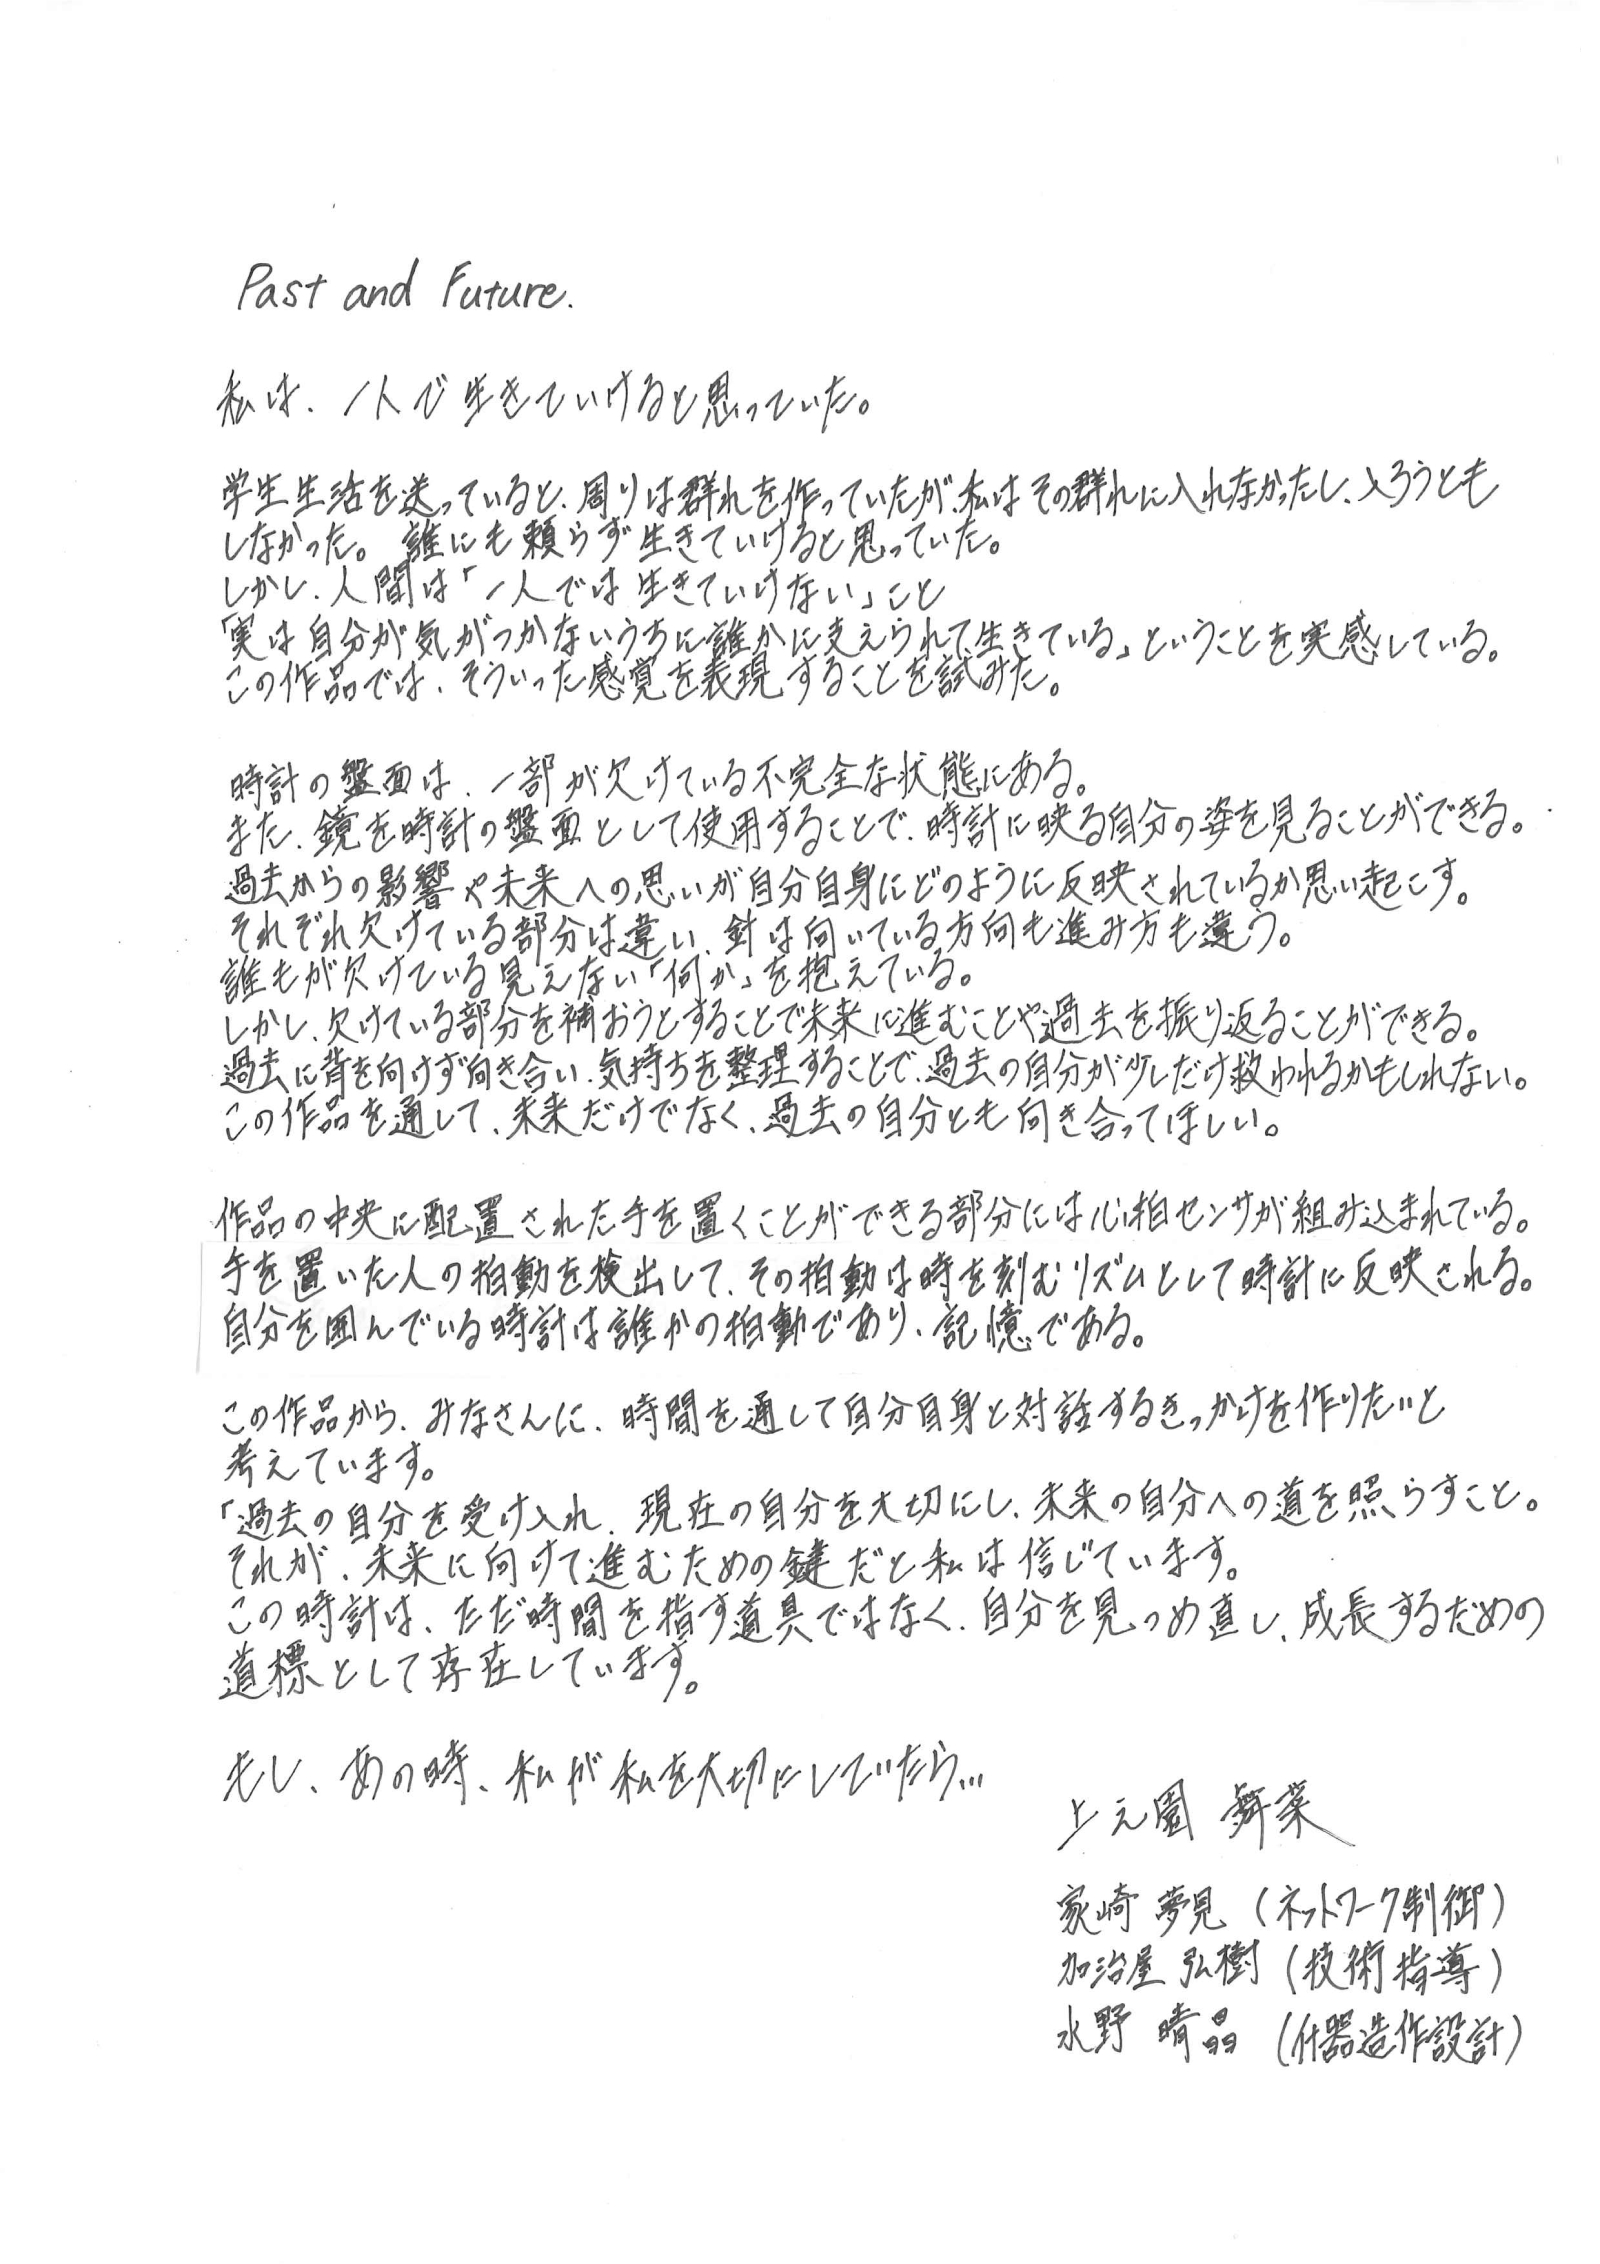 Past and Future.
私は、一人で生きていけると思っていた。
学生生活を送っていると、周りは群れを作っていたが、私はその群れに入れなかったし、入ろうとも
しなかった。誰にも頼らず生きていけると思っていた。
しかし、人間は「一人では生きていけない」こと
「実は自分が気がつかないうちに誰かに支えられて生きている」ということを実感している。
この作品では、そういった感覚を表現することを試みた。
時計の盤面は、一部が欠けている不完全な状態にある。
また、鏡を時計の盤面として使用することで、時計に映る自分の姿を見ることができる。
過去からの影響や未来への思いが自分自身にどのように反映されているか思い起こす。
それぞれ欠けている部分は違い、針は向いている方向も進み方も違う。
誰もが欠けている見えない「何か」を抱えている。
しかし、欠けている部分を補おうとすることで未来に進むことや過去を振り返ることができる。
過去に背を向けず向き合い、気持ちを整理することで、過去の自分が少しだけ救われるかもしれない。
この作品を通して、未来だけでなく、過去の自分とも向き合ってほしい。
作品の中央に配置された手を置くことができる部分には心拍センサが組み込まれている。
手を置いた人の拍動を検出して、その拍動は時を刻むリズムとして時計に反映される。
自分を囲んでいる時計は誰かの拍動であり、記憶である。
この作品から、みなさんに、時間を通して自分自身と対話するきっかけを作りたいと
考えています。
「過去の自分を受け入れ、現在の自分を大切にし、未来の自分への道を照らすこと。
それが、未来に向けて進むための鍵だと私は信じています。
この時計は、ただ時間を指す道具ではなく、自分を見つめ直し、成長するだめの
道標として存在しています。
もし、あの時、私が私を大切にしていたら…
上之園 舞菜
家崎 夢見（ネットワーク制御）
加治屋 弘樹（技術指導）
水野 晴晶（什器造作設計）